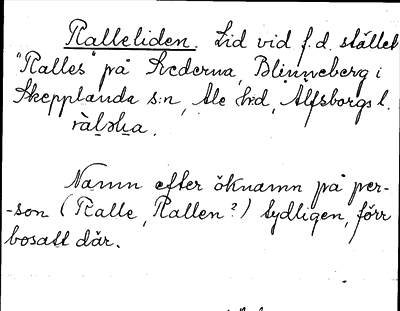 Ralleliden. Lid vid f.d. stället
"Ralles" på Svederna, Blinneberg i
Skepplanda s:n, Ale hd, Älfsborgs l.
Namn efter öknamn på per-
-son (Ralle, Rallen?) tydligen, förr
bosatt där.